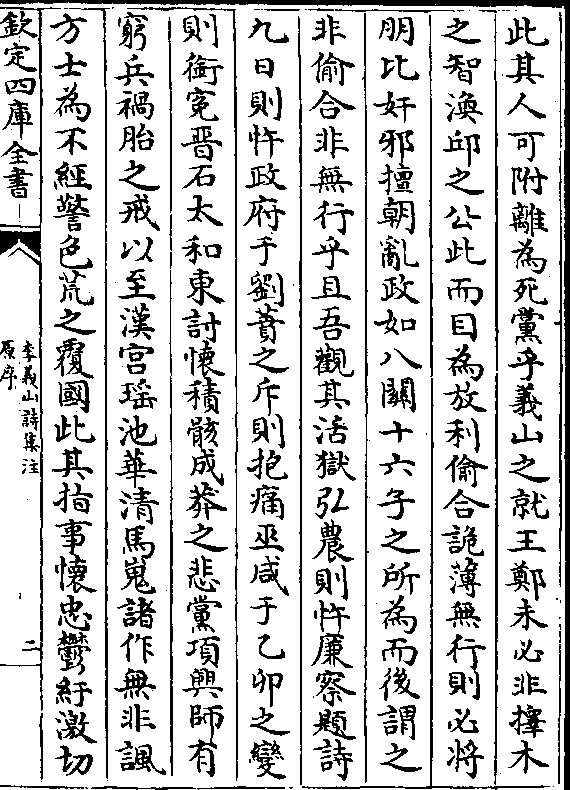 此其人可附離為死黨乎義山之就王鄭未必非擇木
之智渙邱之公此而目為放利偷合詭薄無行則必將
朋比奸邪擅朝亂政如八關十六子之所為而後謂之
非偷合非無行乎且吾觀其活獄弘農則忤廉察題詩
九日則忤政府于劉蕡之斥則抱痛巫咸于乙卯之變
則銜冤晉石太和東討懷積骸成莽之悲黨項興師有
窮兵禍胎之戒以至漢宮瑤池華清馬嵬諸作無非諷
方士為不經警色荒之覆國此其指事懷忠鬱紆激切
欽定四庫全書
李義山詩集注
原序
二